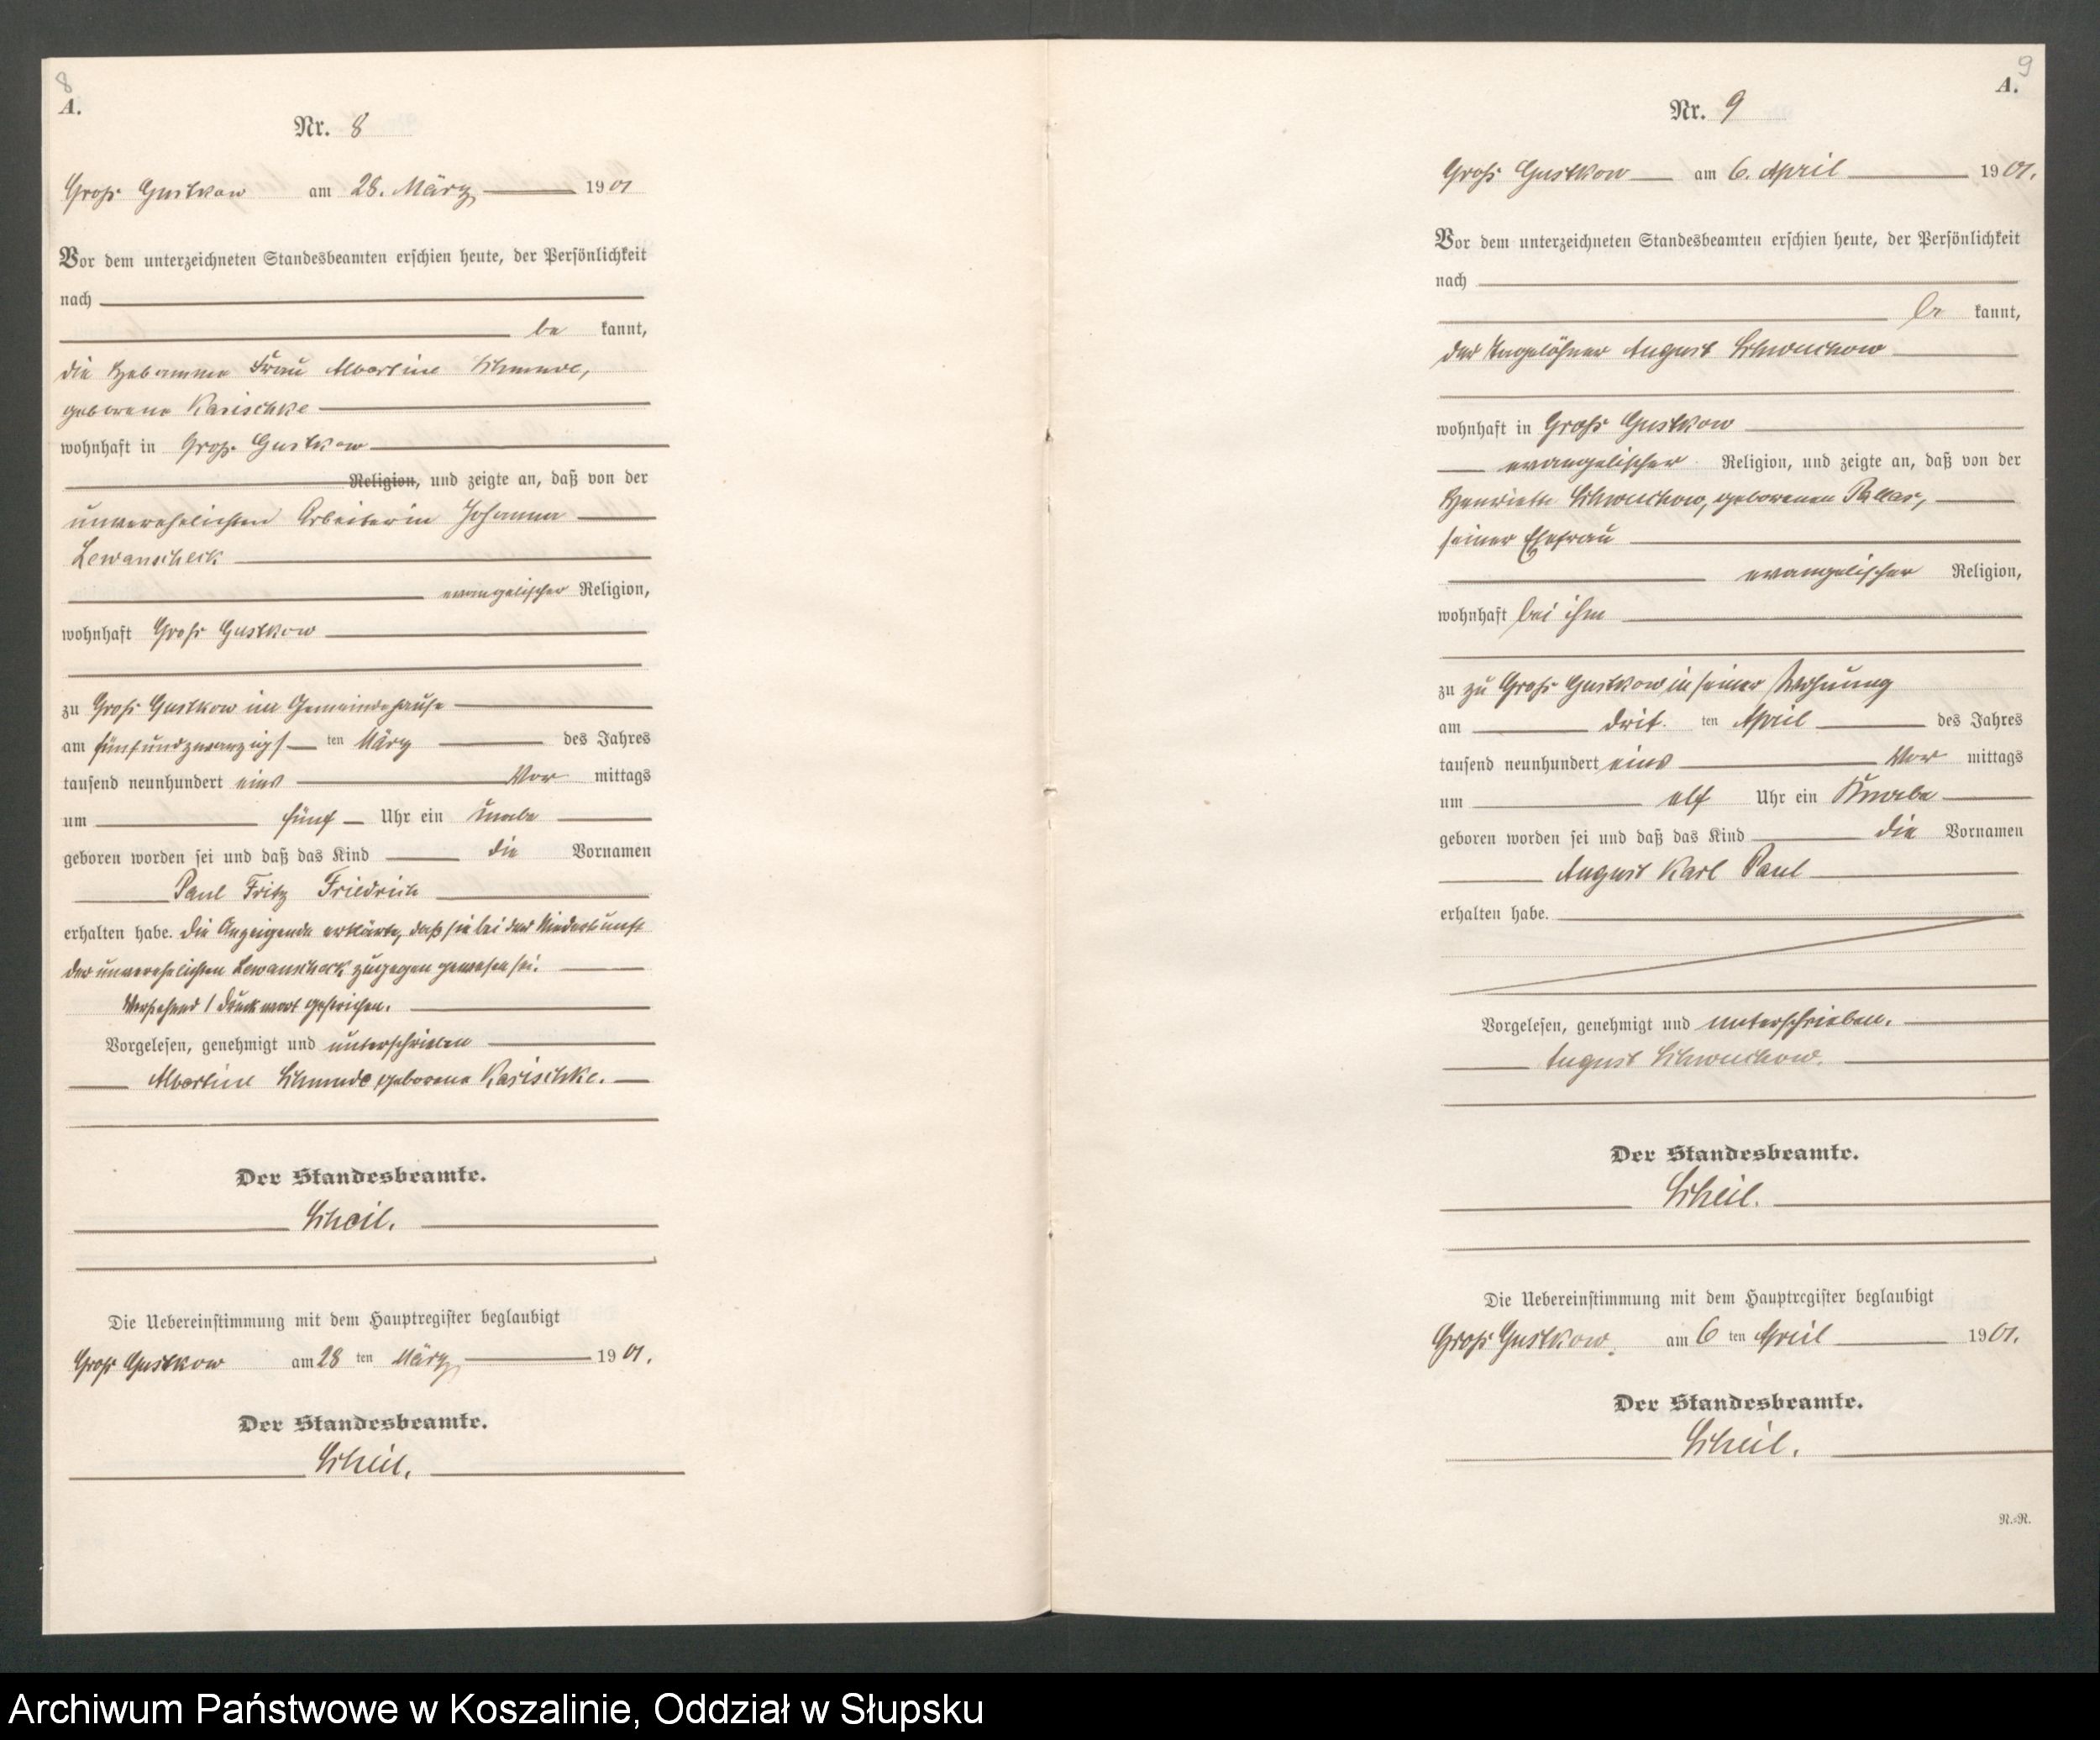 8
A.
Nr. 8
Groß Gustkow am 28. März 1901
Vor dem unterzeichneten Standesbeamten erschien heute, der Persönlichkeit
nach
be kannt,
die Hebamme Frau Albertine Schmude,
geborene Karischke
wohnhaft in Groß Gustkow
Religion, und zeigte an, daß von der
unverehelichten Arbeiterin Johanna
Lewanscheck
evangelischer Religion,
wohnhaft Groß Gustkow
zu Groß Gustkow im Gemeindehause
am fünfundzwanzigs ten März des Jahres
tausend neunhundert eins Vor mittags
um fünf Uhr ein Knabe
geboren worden sei und daß das Kind die Vornamen
Paul Fritz Friedrich
erhalten habe. Die Anzeigende erklärte, daß sie bei der Niederkunft
der unverehelichten Lewanscheck zugegen gewesen sei.
Vorstehend 1 Druckwort gestrichen.
Vorgelesen, genehmigt und unterschrieben
Albertine Schmude geborene Karischke.
Der Standesbeamte.
Scheil.
Die Uebereinstimmung mit dem Hauptregister beglaubigt
Groß Gustkow am 28 ten März 1901.
Der Standesbeamte.
Scheil.
9
A.
Nr. 9
Groß Gustkow am 6. April 1901.
Vor dem unterzeichneten Standesbeamten erschien heute, der Persönlichkeit
nach
be kannt,
der Tagelöhner August Schwuchow
wohnhaft in Groß Gustkow
evangelischer Religion, und zeigte an, daß von der
Henriette Schwuchow, geborenen Pallas,
seiner Ehefrau
evangelischer Religion,
wohnhaft bei ihm
zu zu Groß Gustkow in seiner Wohnung
am drit ten April des Jahres
tausend neunhundert eins Vor mittags
um elf Uhr ein Knabe
geboren worden sei und daß das Kind die Vornamen
August Karl Paul
erhalten habe.
Vorgelesen, genehmigt und unterschrieben.
August Schwuchow.
Der Standesbeamte.
Scheil.
Die Uebereinstimmung mit dem Hauptregister beglaubigt
Groß Gustkow. am 6 ten April 1901.
Der Standesbeamte.
Scheil.
R.=R.
Archiwum Państwowe w Koszalinie, Oddział w Słupsku